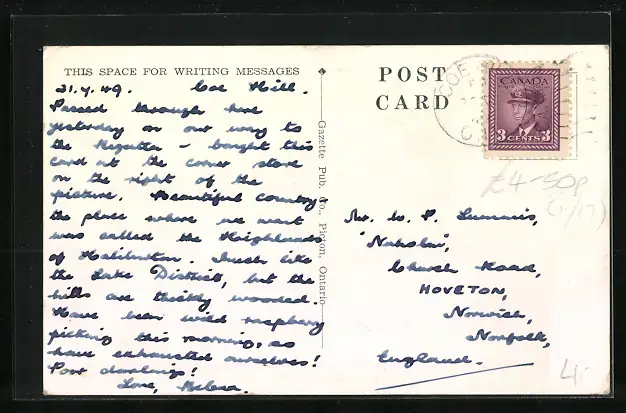 THIS SPACE FOR WRITING MESSAGES
POST
CARD
21.7.49. Coe Hill.
Passed through here
yesterday on our way to
the Regatta - bought this
card at the corner store
on the right of the
picture. Beautiful country
the place where we went
was called the Highlands
of Haliburton. Much like
the Lake District, but the
hills are thickly wooded.
Have been wild raspberry
picking this morning, so
have exhausted ourselves!
Poor darlings!
Love, Helena.
Gazette Pub. Co., Picton, Ontario
COE
CANADA
3 CENTS 3
£4-50p
W. P.
Church Road,
HOVETON,
Norwich,
Norfolk,
England.
4/-